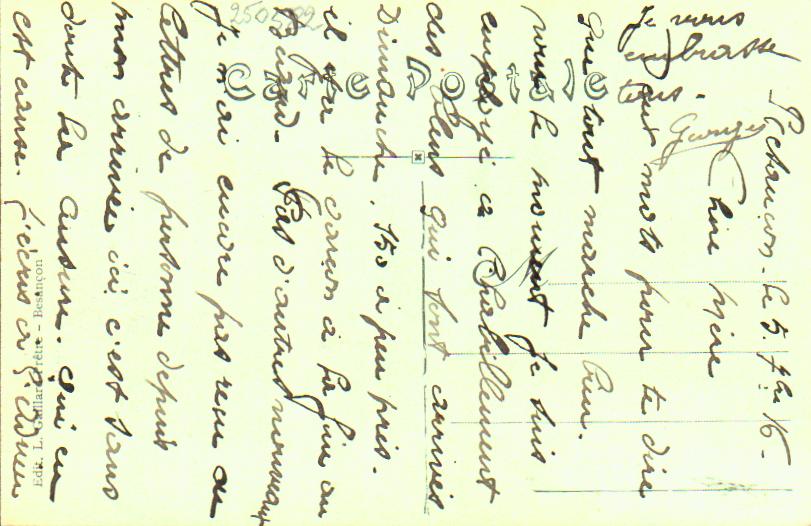 Besançon - le 5. 7bre 16 -
Chère Mère
Deux mots pour te dire
que tout marche bien.
pour le moment je suis
employé à l'habillement
des bleus qui sont arrivés
Dimanche. 150 à peu près.
il y a le cousin à la fin au
Pas d'autres nouveaux
Je n'ai encore pas reçu de
lettres de personne depuis
mon arrivée ici c'est sans
doute la censure. qui en
est cause. J'écris à
Je vous
embrasse
tous -
Georges
Carte Postale
250592
Edit. L. Gaillard-Prêtre - Besançon